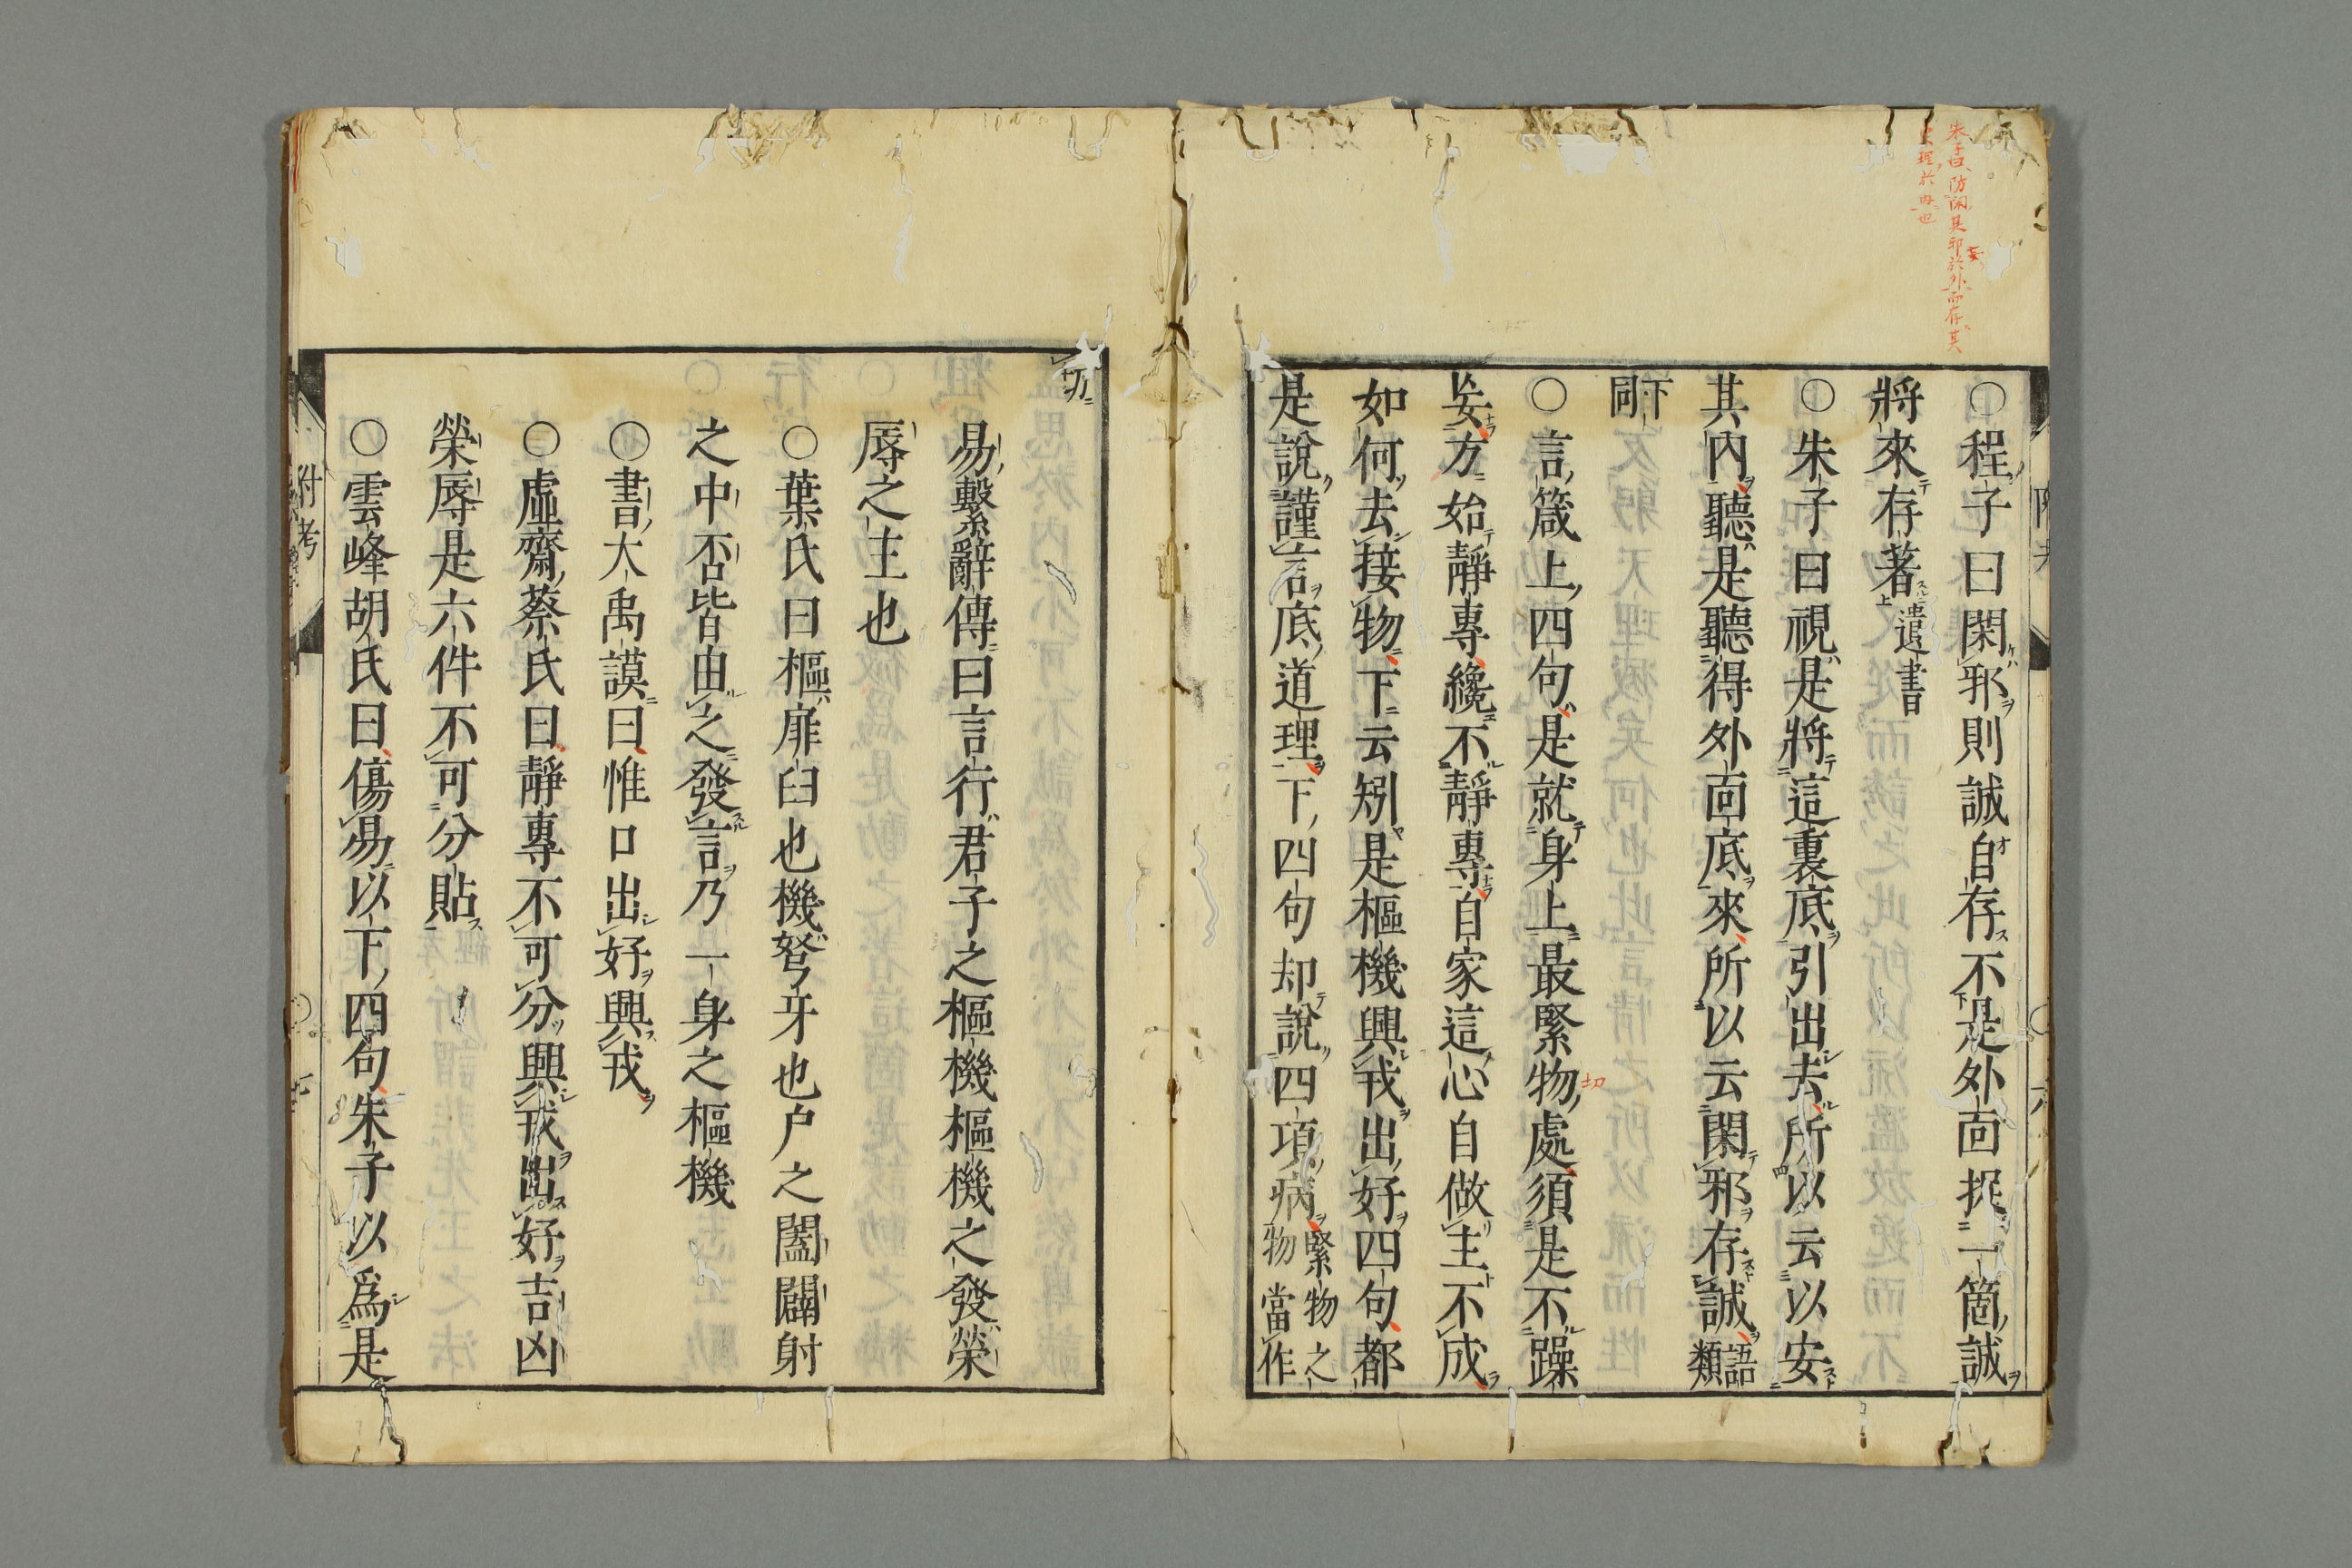 朱子曰防閑其邪於外而存其
實理於内也
○程子曰閑邪則誠自存不是外面捉一箇誠
將來存著遺書
○朱子曰視是將這裏底引出去所以云以安
其內聽是聽得外面底來所以云閑邪存誠語類
下同
○言箴上四句是就身上最緊物處須是不躁
妄方始靜專纔不靜專自家這心自做主不成
如何去接物下云矧是樞機興戎出好四句都
是說謹言底道理下四句却說四項病緊物之物當作
切
易繫辭傳曰言行君子之樞機樞機之發榮
辱之主也
○葉氏曰樞扉臼也機弩牙也户之闔闢射
之中否皆由之發言乃一身之樞機
○書大禹謨曰惟口出好興戎
○虛齋蔡氏曰靜專不可分興戎出好吉凶
榮辱是六件不可分貼
○雲峰胡氏曰傷易以下四句朱子以爲是
附考